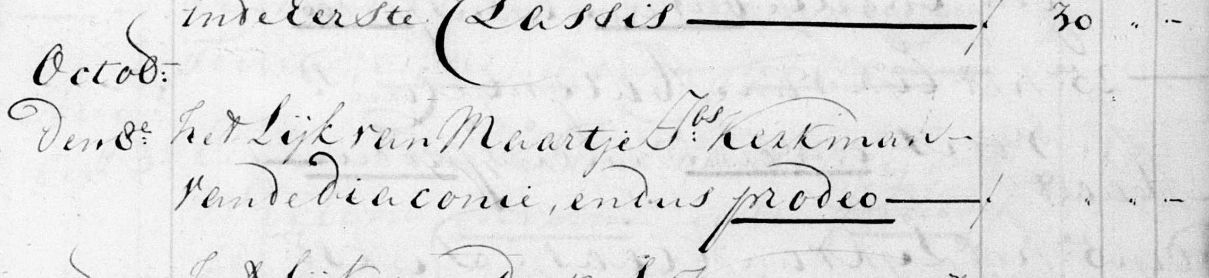 Inde eerste Classis — f 30 " -
Octob:
Den 8e: het Lijk van Maartje Jbs: Kerkman -
vande diaconie, en dus prodeo — f " " -